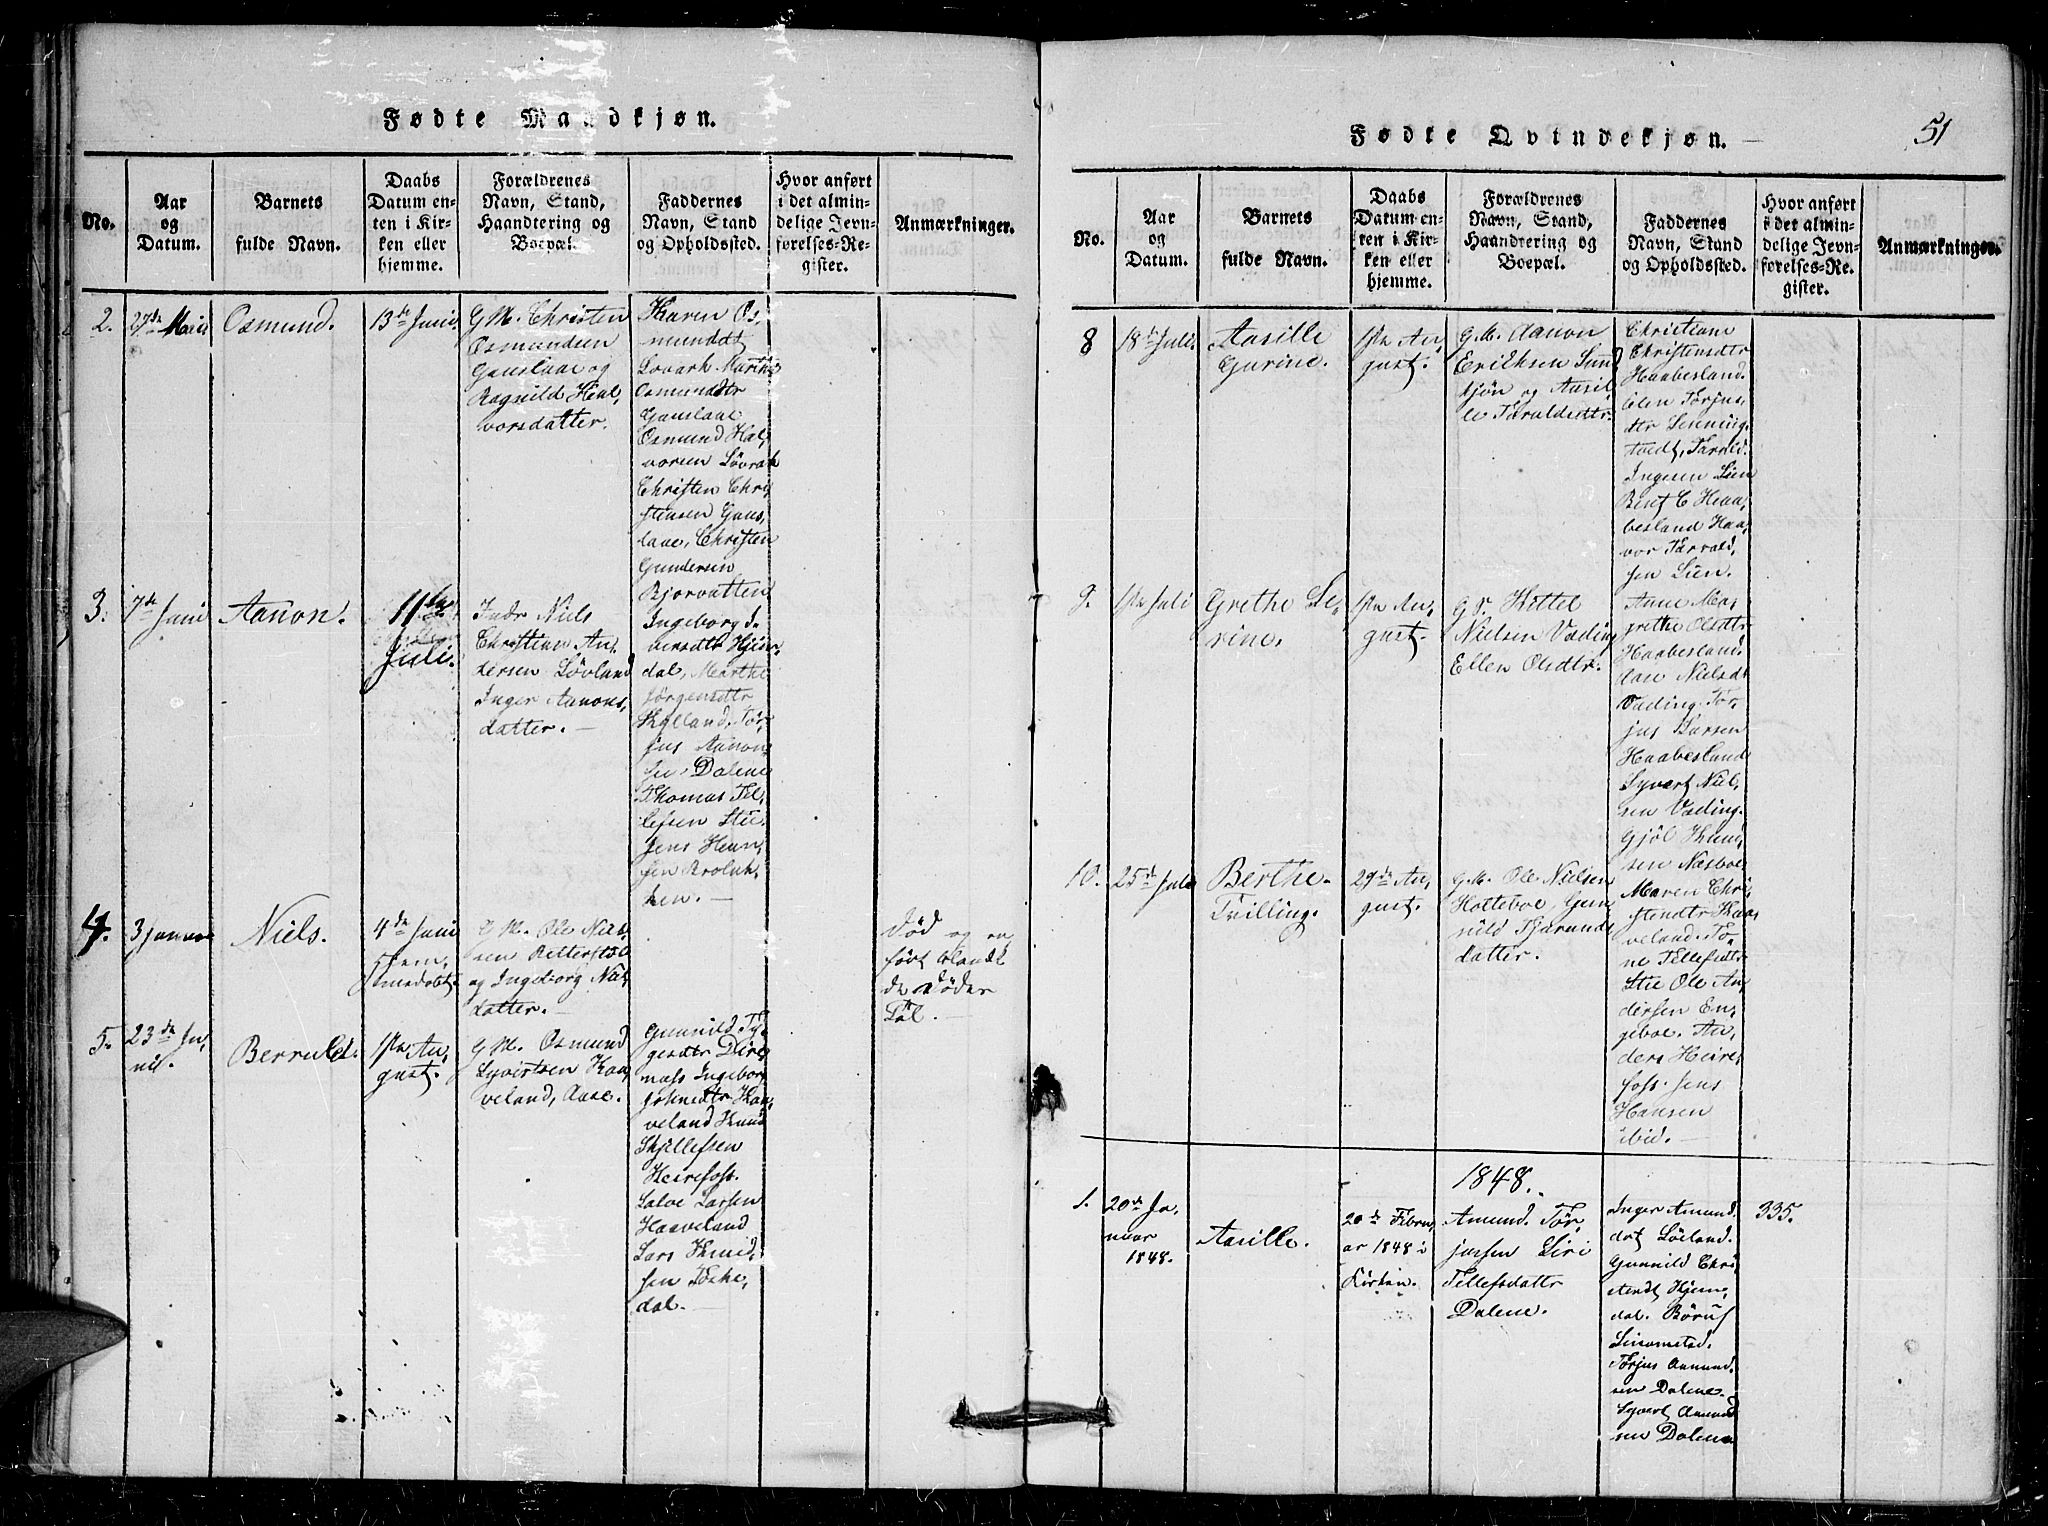 Fødte Mandkjøn.
No.
Aar
og
Datum.
Barnets
fulde Navn.
Daabs
Datum en-
ten i Kir-
ken eller
hjemme.
Forældrenes
Navn, Stand,
Haandtering og
Boepæl.
Faddernes
Navn, Stand
og Opholdssted.
Hvor anført
i det almin-
delige Jevn-
førelses-Re-
gister.
Anmærkninger.
2.
27de Maii
Osmund.
13de Junii
G. M. Christen
Osmundsen
Gauslaae og
Ragnild Hal,
vorsdatter.
Karen Os,
munddt
Lovark Marthe
Osmunddtr
Gauslaae
Osmund Hal,
vorsen Lövrak
Christen Chri
stensen Gaus,
laae, Christen
Gundersen
Bjorvatten
3.
7de Juni
Aanon.
11te
Juli.
Indr Niels
Christian An,
dersen Lövland
Inger Aanons,
datter.
Ingeborg I
versdtr Hjem
dal, Marthe
Jörgensdtr
Kylland, Tör,
jus Aanon,
sen Dalene
Thomas Tel,
lefsen Stie
Jens Hen,
sen
ken.
4.
3 januar
Niels.
4de Juni
hjem,
medøbt.
G. M. Ole Niel,
sen
og Ingeborg Niels
datter.
Død og an,
ført blandt
de Døde
5.
23de Ju,
nii.
Berruld.
1ste Au,
gust.
G. M. Osmund
Syvertsen Haa,
veland, Aase.
Gunnild Ty,
gesdtr Dire,
næss Ingeborg
Johnsdtr Haa,
veland Knud
Kjillefsen
Heirefoss.
Salve Larsen
Haaveland
Lars Knud,
sen Toske,
dal.
Fødte Qvindekjøn.
51
No.
Aar
og
Datum.
Barnets
fulde Navn.
Daabs
Datum en-
ten i Kir-
ken eller
hjemme.
Forældrenes
Navn, Stand,
Haandtering og
Boepæl.
Faddernes
Navn, Stand
og Opholdssted.
Hvor anført
i det almin-
delige Jevn-
førelses-Re-
gister.
Anmærkninger.
8
18de Juli.
Aasille
Gurine.
1ste Au,
gust.
G. M. Aanon
Eriksen Sund
tjön og Aasil
le Taraldsdtr.
Christiane
Christensdtr
Haabesland.
Elen Törjus,
dtr Senning,
tvedt, Tarald
Ingesen Lien
Bent C Haa,
besland Haa,
vor Tarald,
sen Lien.
9.
1ste Juli
Grethe Se,
rine.
1ste Au,
gust.
G. P. Kittel
Nielsen Væding
Ellen Olsdtr.
Anne Mar,
grethe Olsdtr
Haabesland.
Nielsdt
Væding. Tör,
jus Larsen
Haabesland
Syvert Niel,
sen Væding.
Gjöl Knud,
sen Næsboe
10.
25de Juli
Berthe.
Tvilling.
29de Au,
gust.
G. M. Ole Nielsen
Hotteboe, Gun
nild Tjerands
datter.
Maren Chri,
stensdtr Haa,
veland. To,
ne Tellefsdtr
Stie Ole An,
dersen En,
geboe. An,
ders Heire,
foss. Jens
Hansen
ibid.
1848.
1.
20de Ja,
nuar
1848.
Aasille.
20de Febru,
ar 1848 i
Kirken.
Amund Tör,
jussen Siri
Tellefsdatter
Dalene.
Inger Amund,
dat Löeland.
Gunnild Chri
stensdt Hjem,
dal. Börus
Törjus Amund
sen Dalene.
Syvert Amund
sen Dalene
335.